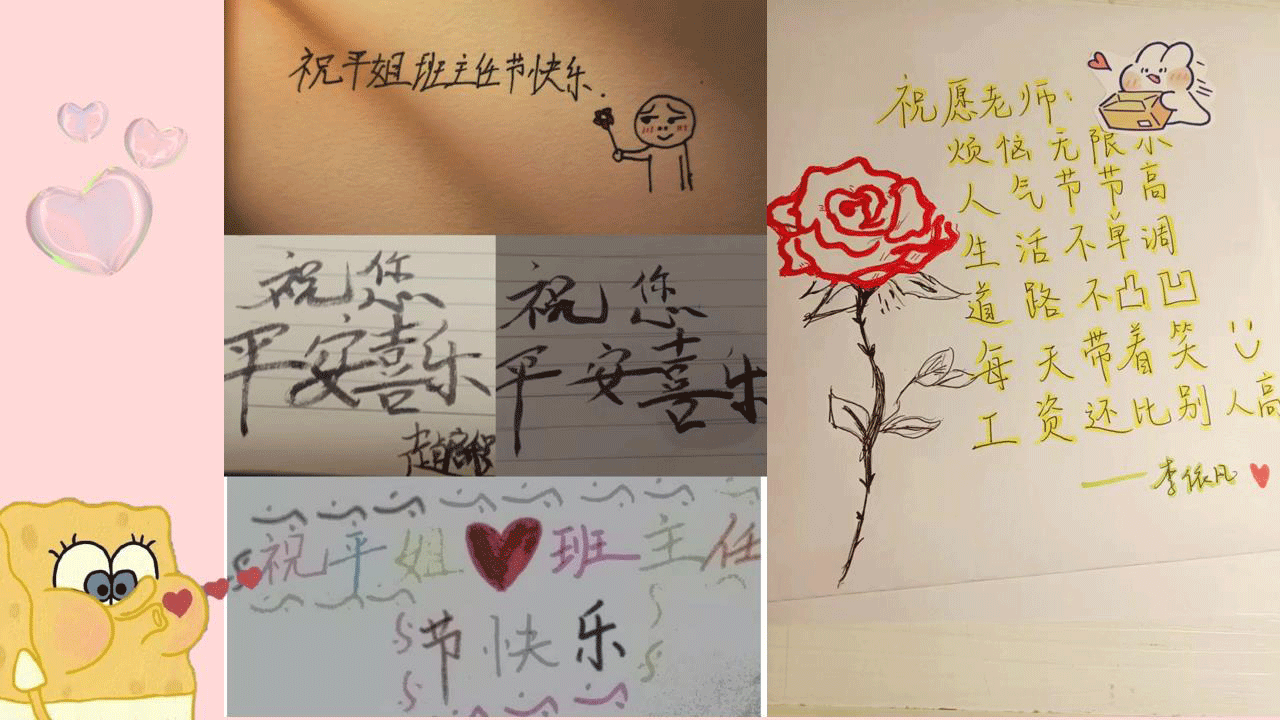 祝平姐班主任节快乐.
祝您
平安喜乐
祝您
平安喜乐
祝平姐班主任
节快乐
祝愿老师:
烦恼无限小
人气节节高
生活不单调
道路不凸凹
每天带着笑
工资还比别人高
——李依凡